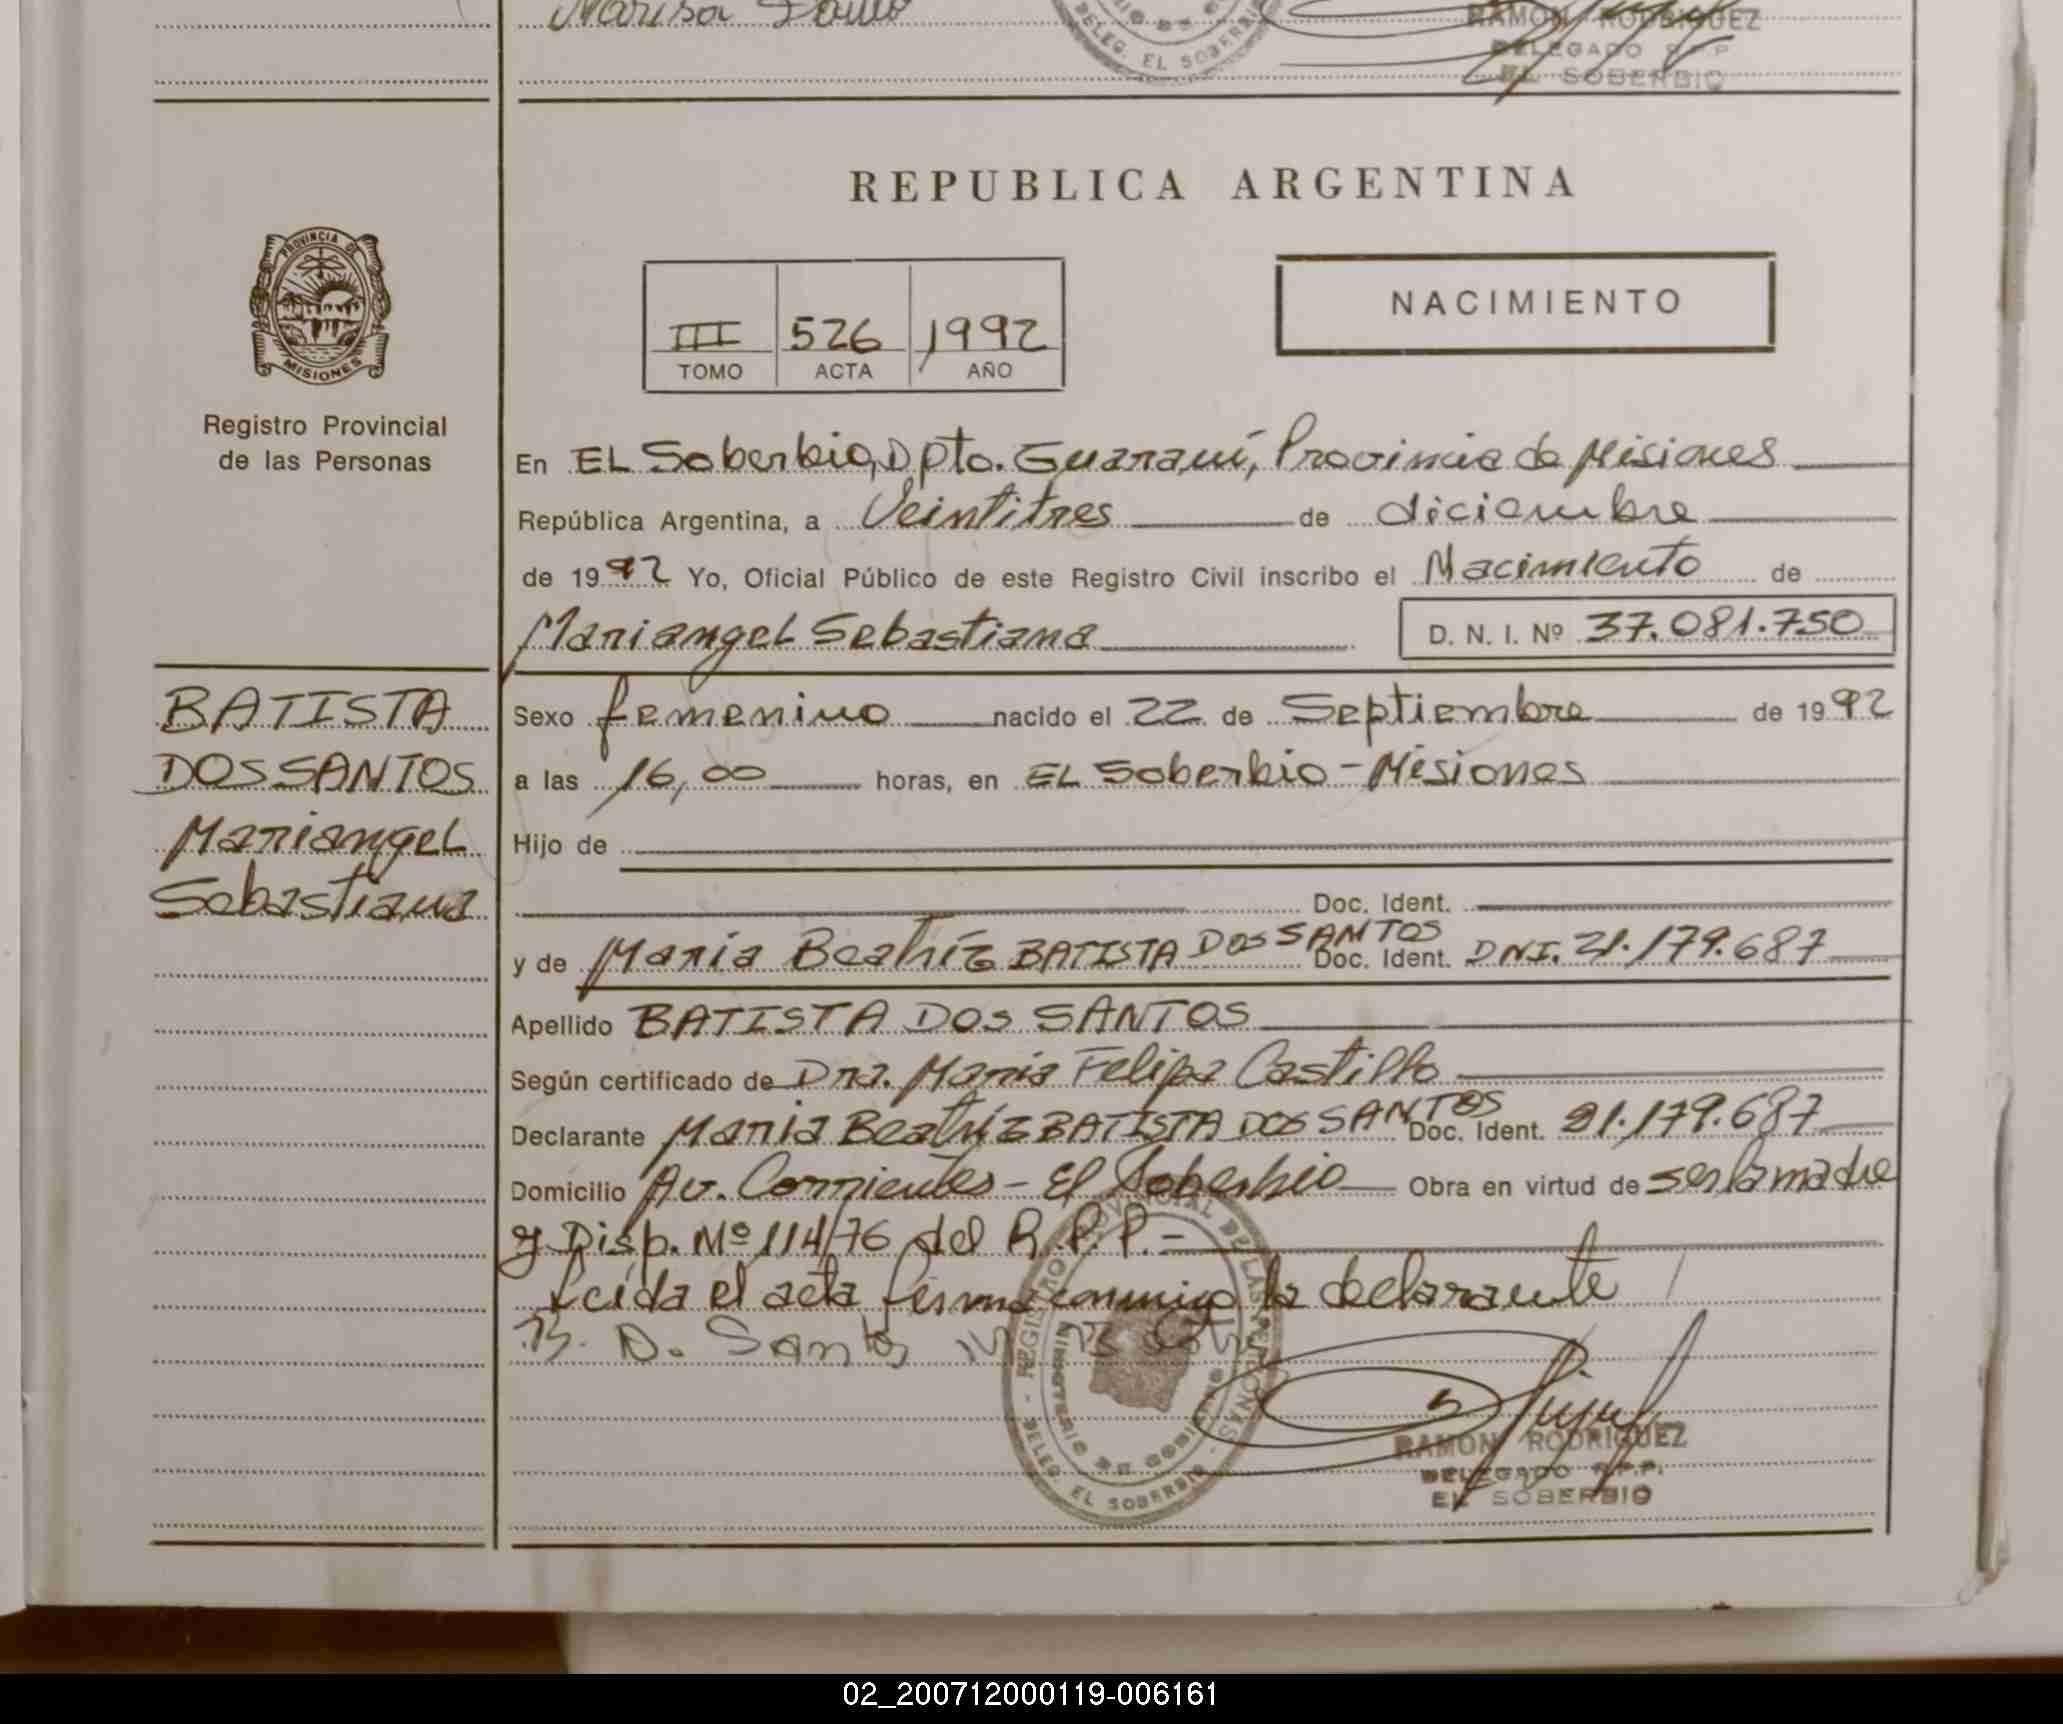 Marisa
DELEG. EL SOBERBIO
RAMON RODRIGUEZ
DELEGADO R.P.P.
EL SOBERBIO
REPUBLICA ARGENTINA
PROVINCIA DE
MISIONES
Registro Provincial
de las Personas
III 526 1992
TOMO ACTA AÑO
NACIMIENTO
En EL Soberbio, Dpto. Guaraní, Provincia de Misiones
República Argentina, a Veintitres de diciembre
de 1992 Yo, Oficial Público de este Registro Civil inscribo el Nacimiento de
Mariangel Sebastiana D. N. I. Nº 37.081.750
BATISTA
DOS SANTOS
Mariangel
Sebastiana
Sexo femenino nacido el 22 de Septiembre de 1992
a las 16,00 horas, en EL Soberbio - Misiones
Hijo de
Doc. Ident.
y de Maria Beatríz BATISTA DOS SANTOS Doc. Ident. DNI. 21.179.687
Apellido BATISTA DOS SANTOS
Según certificado de Dra. Maria Felipa Castillo
Declarante Maria Beatríz BATISTA DOS SANTOS Doc. Ident. 21.179.687
Domicilio Av. Corrientes - El Soberbio Obra en virtud de ser la madre
y Disp. Nº 114/76 del R.P.P. -
Leída el acta firma conmigo la declarante
B. D. Santos M B
REGISTRO PROVINCIAL DE LAS PERSONAS - DELEG. EL SOBERBIO -
MINISTERIO DE GOBIERNO
RAMON RODRIGUEZ
DELEGADO R.P.P.
EL SOBERBIO
02_200712000119-006161